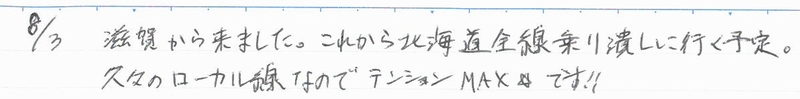 8/3 滋賀から来ました。これから北海道全線乗り潰しに行く予定。
久々のローカル線なので テンションMAXです!!